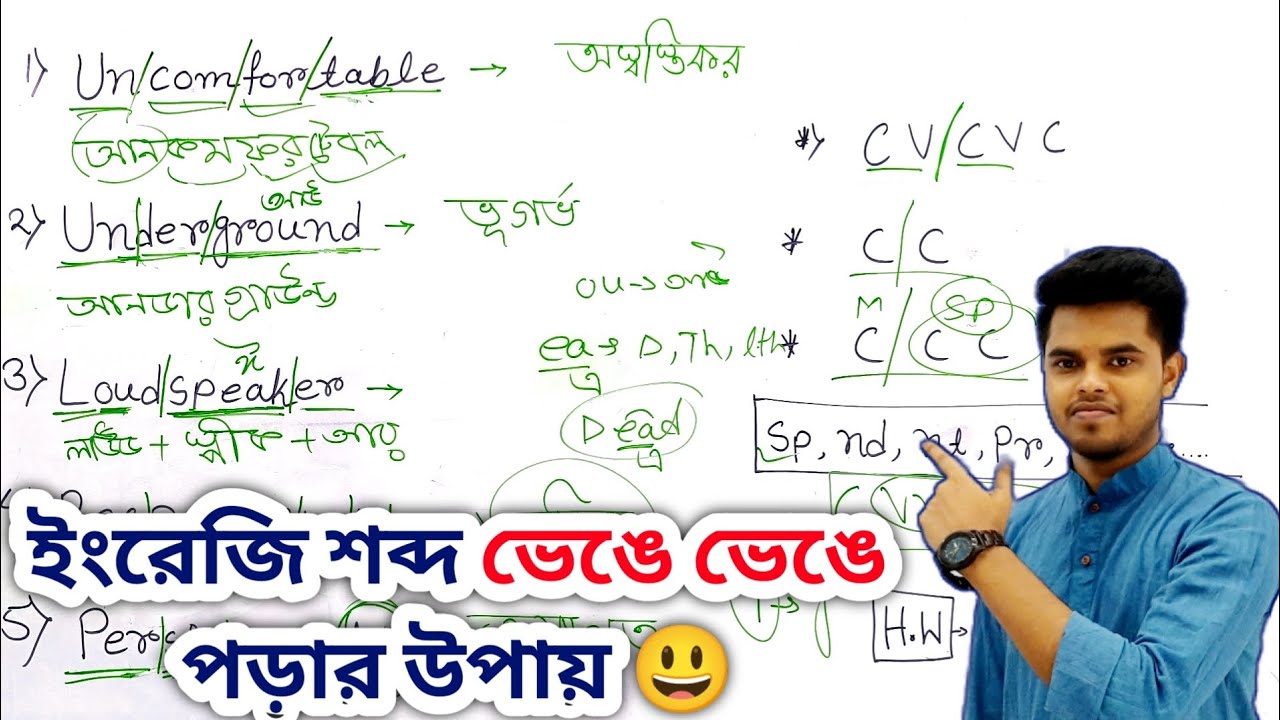 1) Un/com/for/table → অস্বস্তিকর
আনকমফরটেবল
আউ
2) Un/der/ground → ভূগর্ভ
আনডার গ্রাউন্ড
ou → আউ
3) Loud/speak/er →
ea → D, Th, lth
এ
লাউড + স্পীক + আর
Dead
এ
*) C V / C V C
* C / C
M / SP
* C / C C
Sp, nd, nt, Pr,
C V
ইংরেজি শব্দ ভেঙে ভেঙে
5) Per
H.W →
পড়ার উপায় 😃